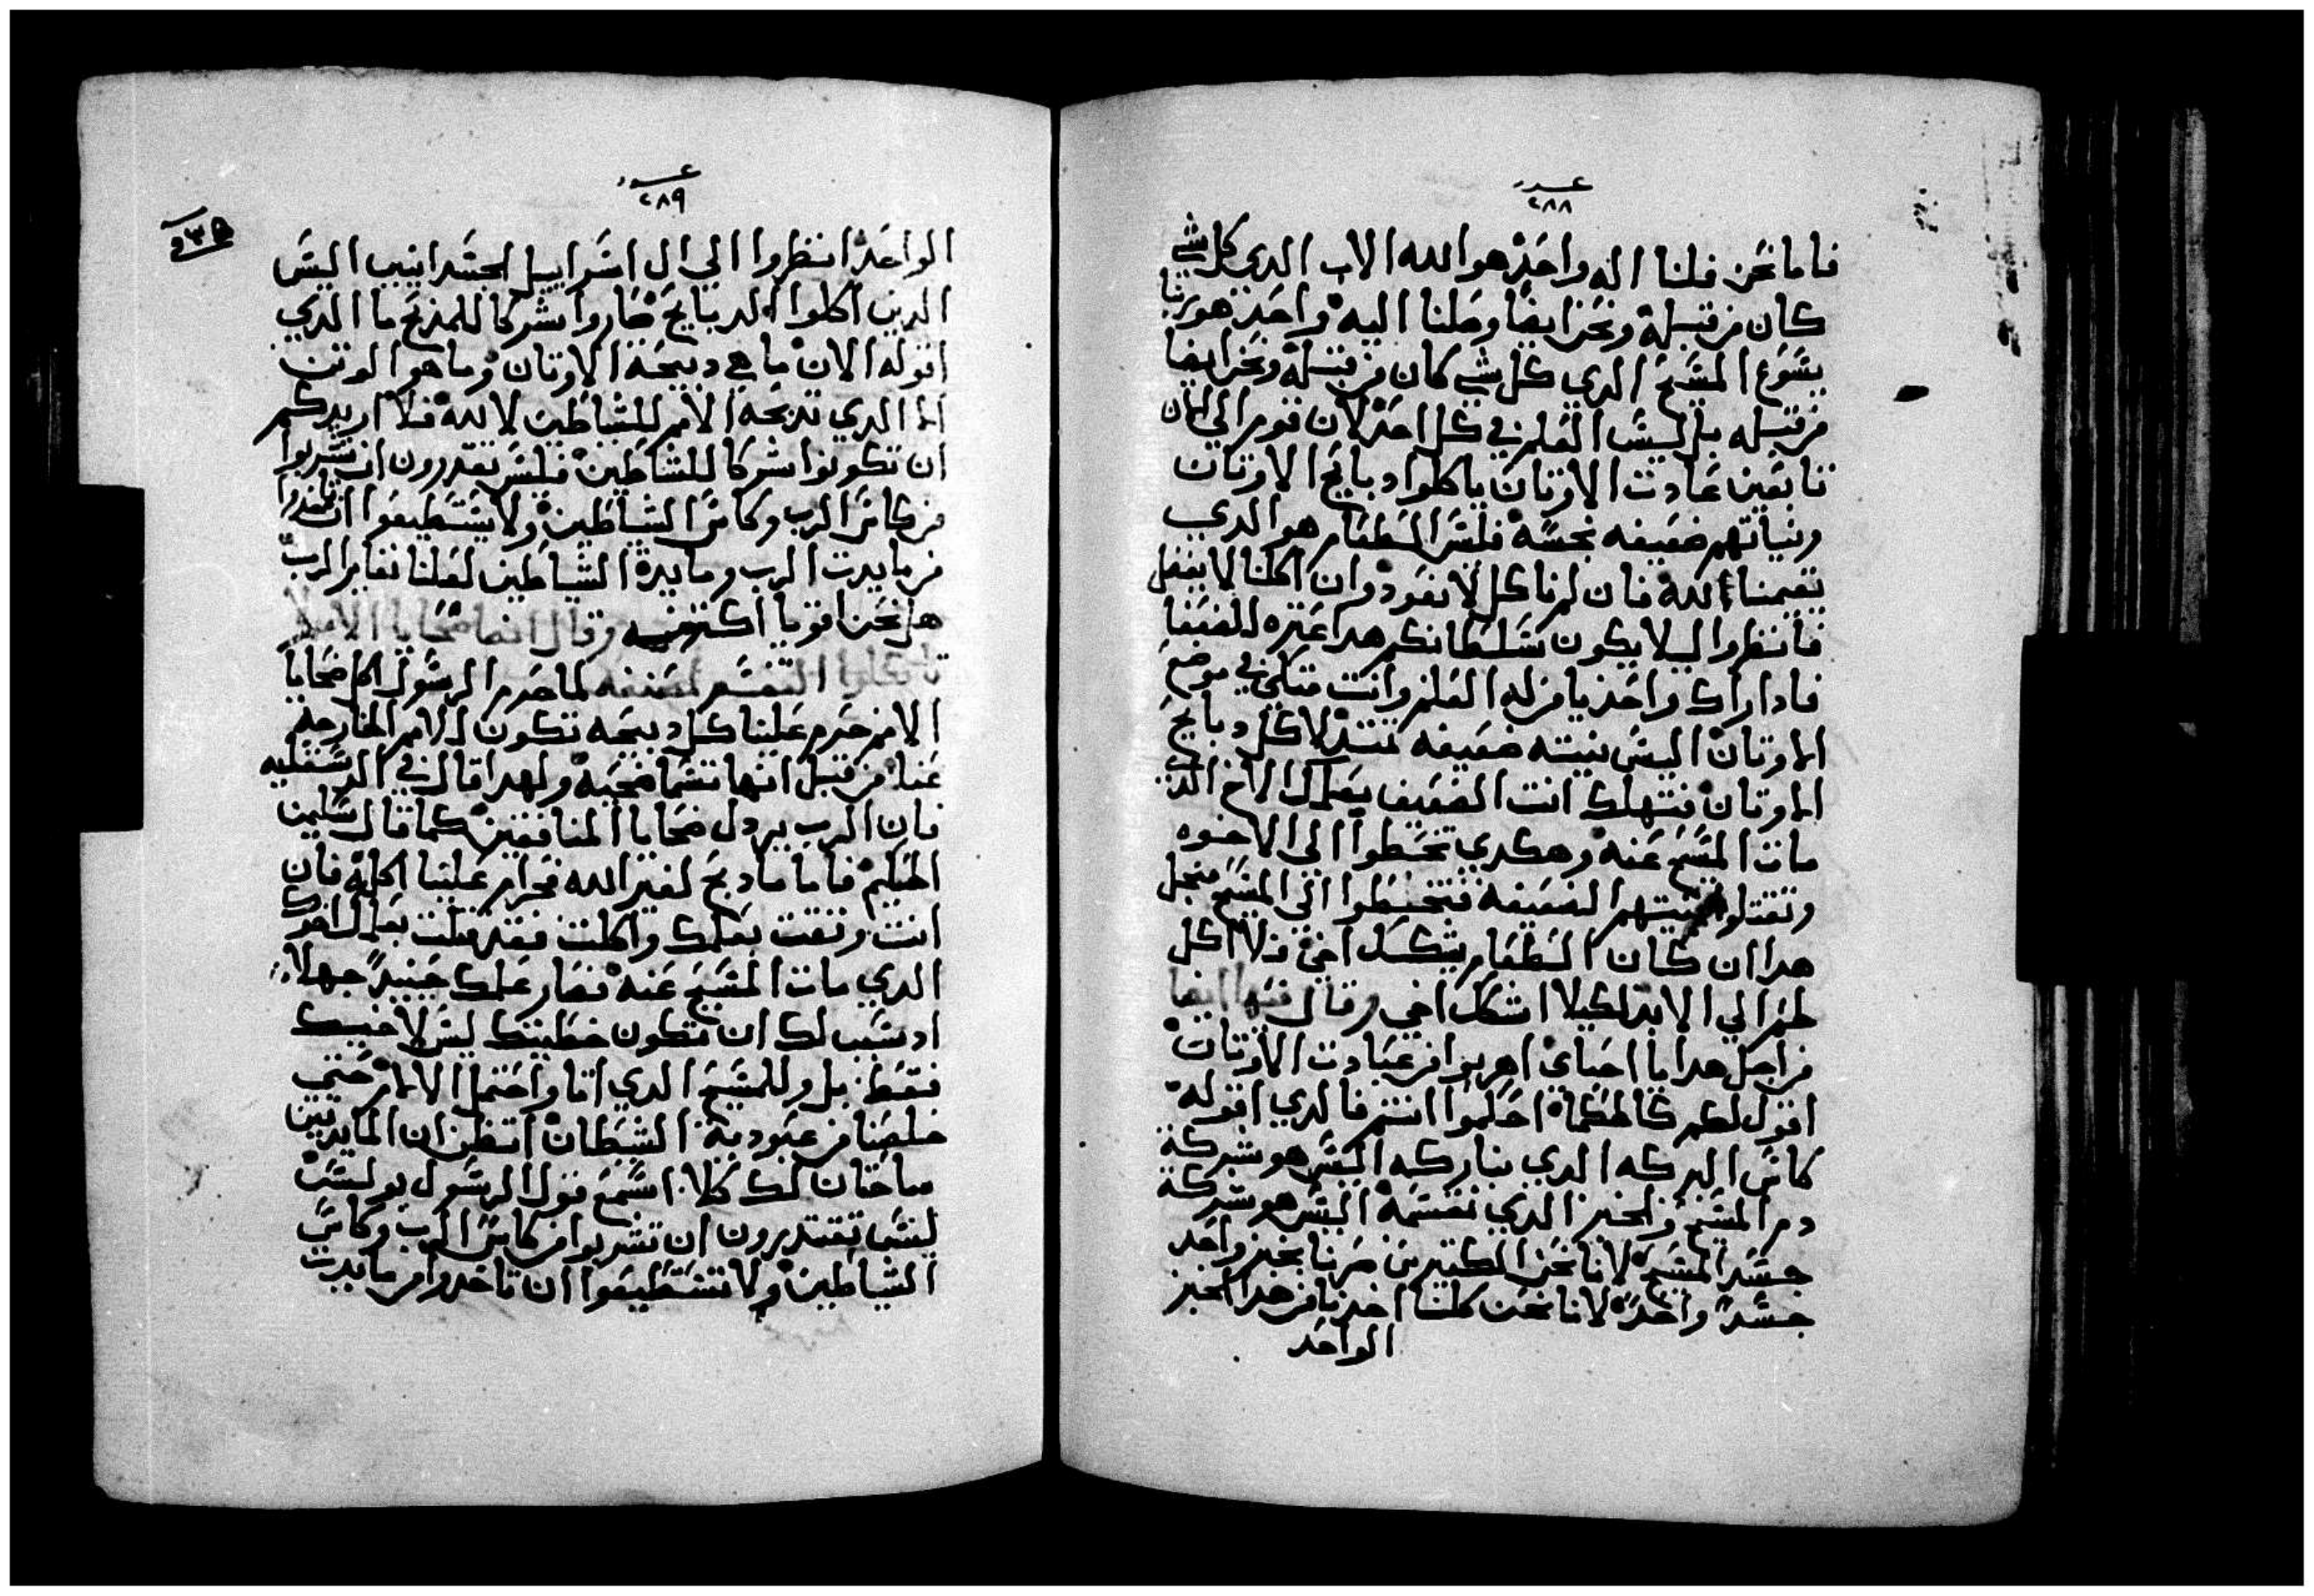 عدد
٢٨٨
فاما نحن فلنا اله واحد هو الله الاب الدي كل شي
كان من قبله ونحن ايضا وصلنا اليه واحد هو ربنا
يسوع المسيح الدي كل شي كان من قبله ونحن ايضا
من قبله بل ليس العلم في كل احد لان قوم الي الان
تابعين عادت الاوتان ياكلوا دبايح الاوتان
ونياتهم ضعيفه نجسه فليس الطعام هو الدي
يقيمنا الله فان لم ناكل لا نعود وان اكلنا لا ينفل
فانظروا ليلا يكون سلطانكم هدا عتره للضعفا
فادا راك واحد يا من له العلم وانت متكي في موضع
الاوتان اليس نيته ضعيفه تمتد لاكل دبايح
الاوتان فتهلك انت الضعيف بعملك الاخ الدي
مات المسيح عنه وهكدي تخطوا الي الاخوه
وتقتلوا نيتهم الضعيفة فتخطوا الي المسيح فنجل
هدا ان كان الطعام يشكك اخي فلا اكل
لحم الي الابد لكيلا اشكك اخي وقال ايضا
من اجل هدا يا احباي اهربوا من عبادت الاوتان
اقول لكم كالحكماة احكموا انتم فالدي اقوله
كاس البركه الدي نباركه اليس هو شركة
دم المسيح والخبز الدي نقسمه اليس هو شركة
جسد المسيح لانا نحن الكتيرين صرنا بخبز واحد
جسدً واحدً لانا نحن كلنا اخدنا من هدا الخبز
الواحد
عدد
٢٨٩
الواحد انظروا الي ال اسراييل الجسدانيين اليس
الدين اكلوا الدبايح صاروا شركا للمذبح ما الدي
اقوله الان ما هي دبيحة الاوتان وما هو الوتن
الا الدي تدبحه الامم للشياطين لا لله فلا اريدكم
ان تكونوا شركا للشاطين فليس تقدرون ان تشربوا
من كاس الرب وكاس الشياطين ولا يستطيعوا ان تاخدوا
من مايدت الرب ومايدة الشياطين لعلنا نغاير الرب
هل نحن اقويا اكتر منه وقال ايضا ضحايا الامم
لا تاكلوا التفسير لمصنفه لما حرم الرسول اكل ضحايا
الامم حرم علينا كل دبيحه تكون للامم الخارجة
عنا من قبل انها تسما ضحيه ولهدا قال في الدسقليه
فان الرب يردل ضحايا المنافقين كما قال سليمن
الحكيم فاما ما دبح لغير الله فحرام علينا اكله فان
انت وتقت بعلمك واكلت فقد قتلت بعلمك اخوك
الدي مات المسيح عنه فصار علمك حينيدً جهلا
اد سبب لك ان تكون خطيتك ليس لاخيك
فقط بل وللمسيح الدي اتا واحتمل الالام حتي
خلصنا من عبودية الشيطان اتظن ان المايدتين
مباحتان لك كلا اسمع قول الرسول بولس
ليس تقتدرون ان تشربوا من كاس الرب وكاس
الشياطين ولا تستطيعوا ان تاخدوا من مايدت